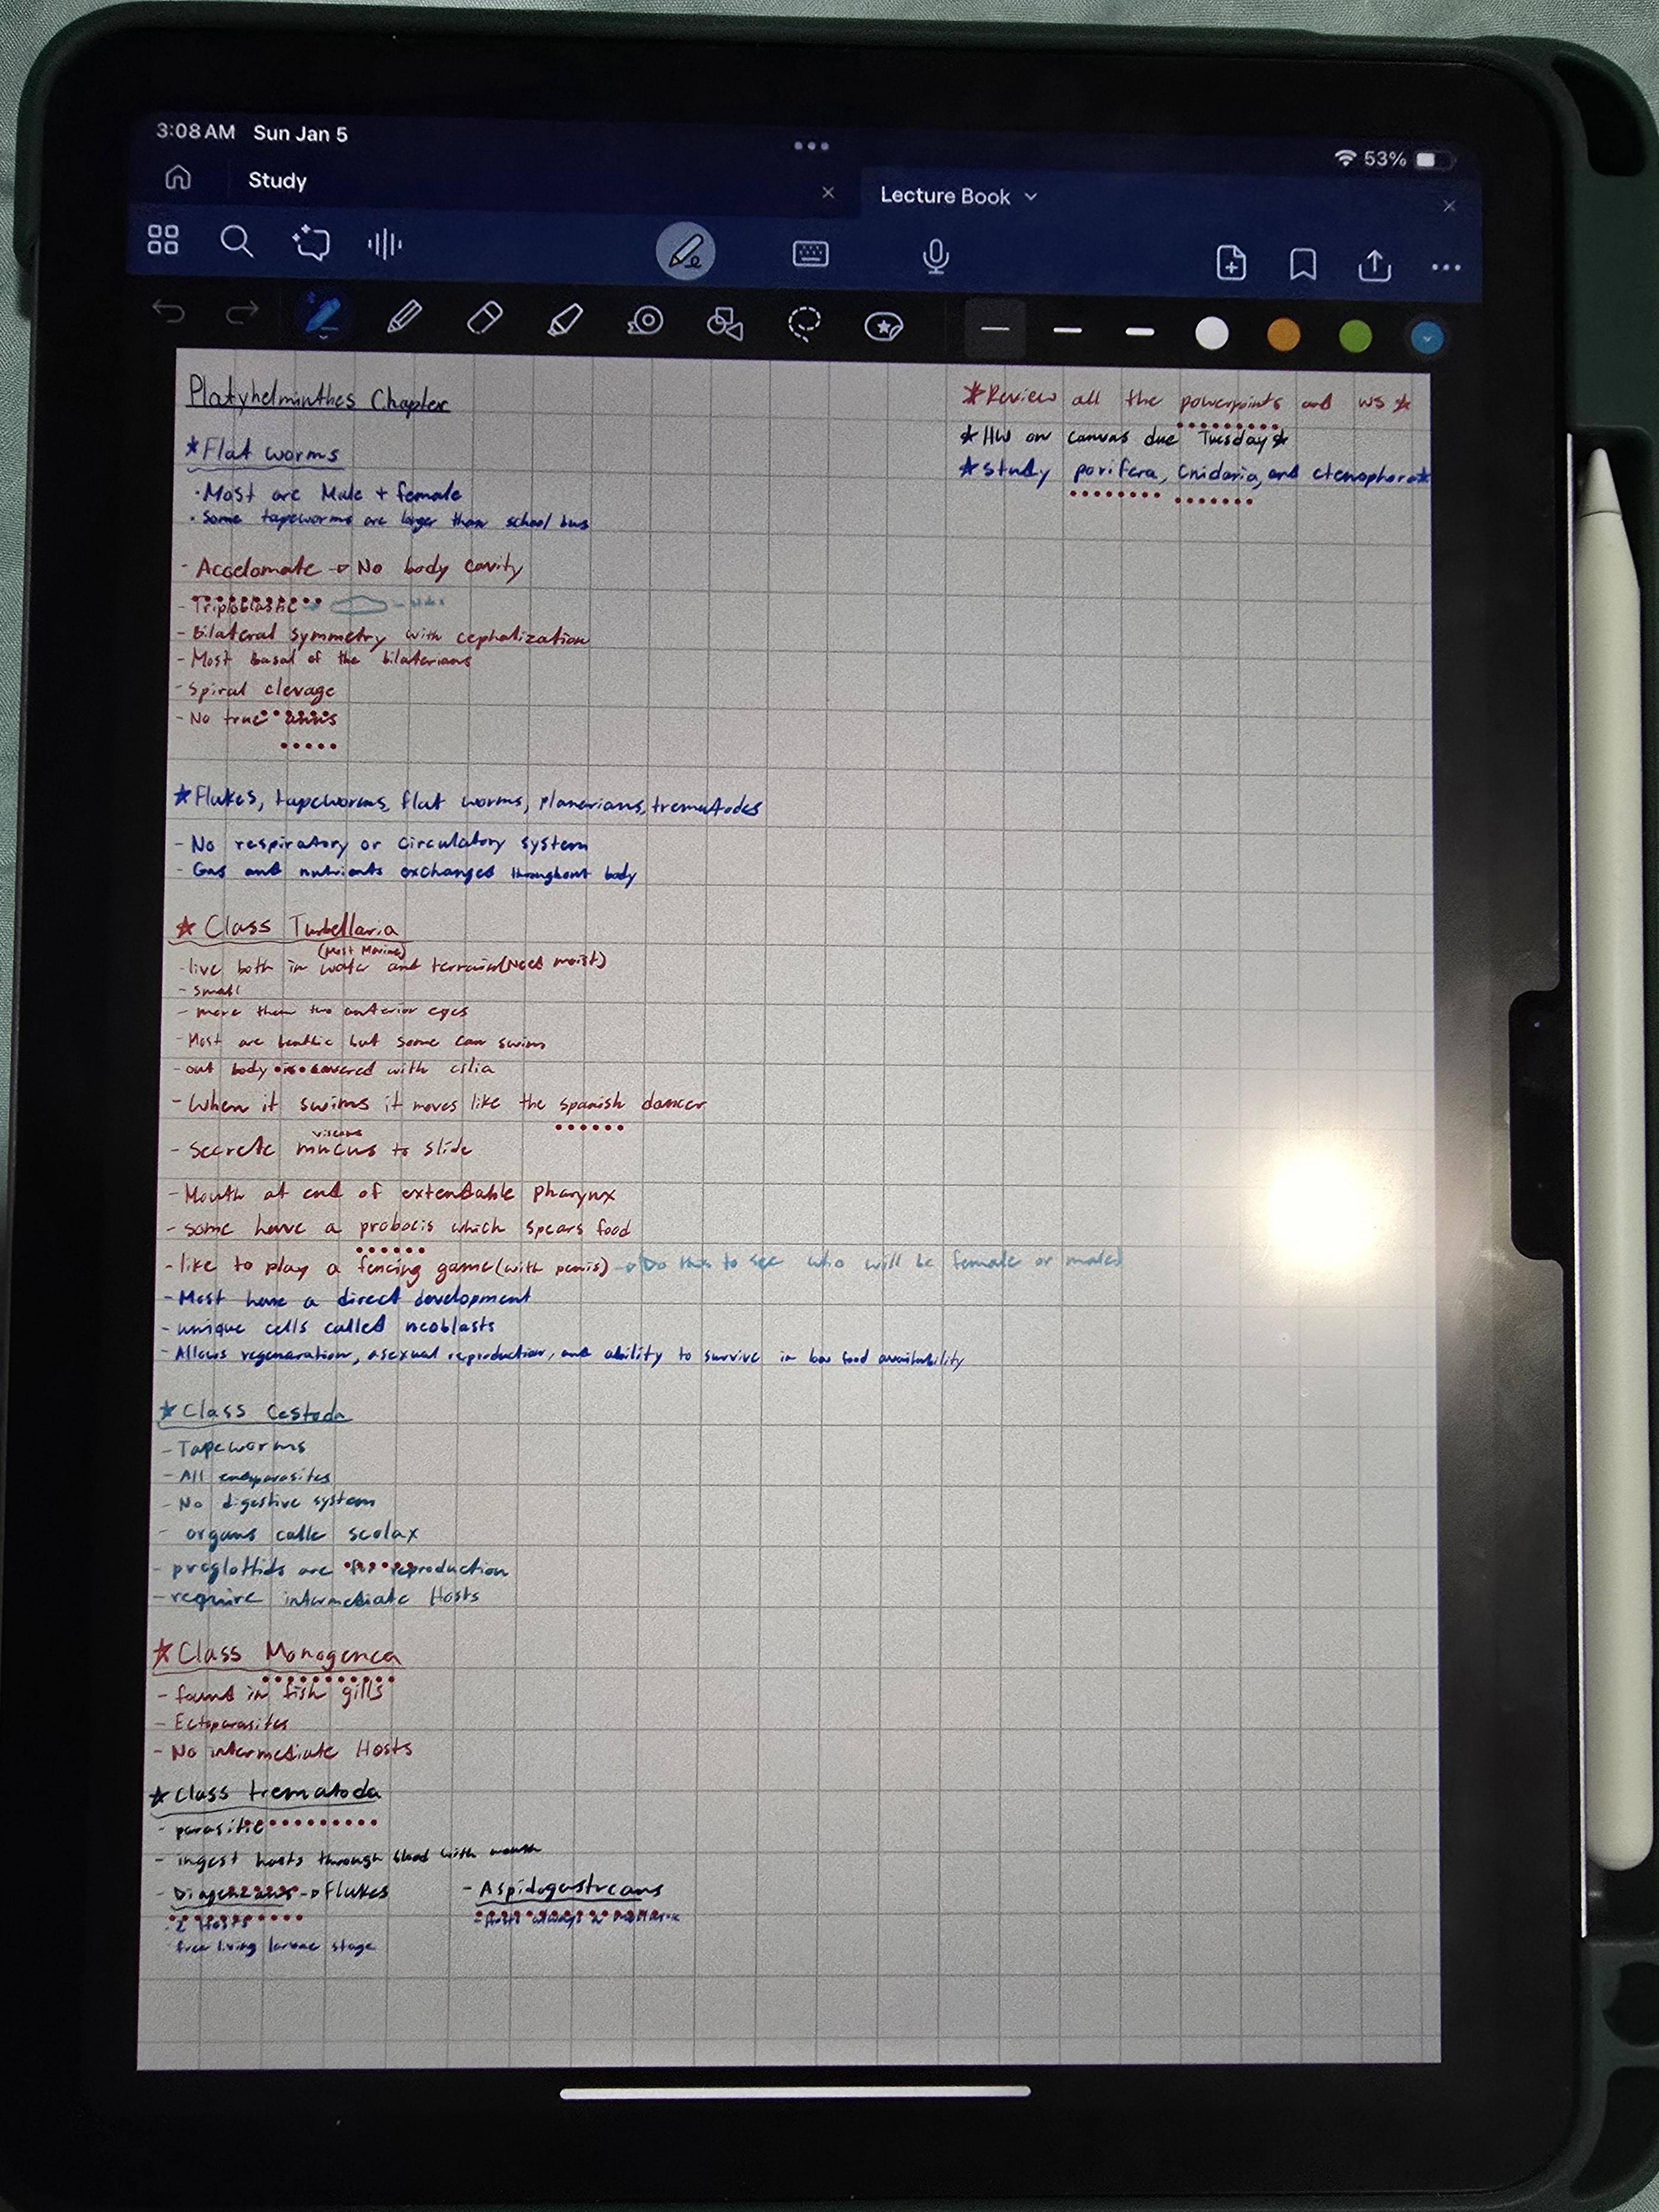 3:08 AM Sun Jan 5
53%
Study
Lecture Book
Platyhelminthes Chapter
*Review all the powerpoints and WS*
*HW on canvas due Tuesday*
*Study porifera, Cnidaria, and ctenophora*
*Flat worms
·Most are Male + female
·Some tapeworms are larger than school bus
- Accelomate → No body cavity
- Triploblastic
- Bilateral symmetry with cephalization
- Most basal of the bilaterians
- Spiral clevage
- No true anus
*Flukes, tapeworms, flat worms, planarians, trematodes
- No respiratory or circulatory system
- Gas and nutrients exchanged throughout body
* Class Turbellaria
(Most Marine)
- live both in water and terrain (Need moist)
- Small
- more than two anterior eyes
- Most are benthic but some can swim
- out body is covered with cilia
- When it swims it moves like the spanish dancer
viscous
- Secrete mucus to slide
- Mouth at end of extendable pharynx
- some have a probocis which spears food
- like to play a fencing game (with penis) → Do this to see who will be female or males
- Most have a direct development
- unique cells called neoblasts
- Allows regeneration, asexual reproduction, and ability to survive in low food availability
* Class Cestoda
- Tapeworms
- All endoparasites
- No digestive system
- organs calle scolax
- proglottids are for reproduction
- require intermediate Hosts
* Class Monogenea
- found in fish gills
- Ectoparasites
- No intermediate Hosts
* Class trematoda
- parasitic
- ingest hosts through blood with mouth
- Diageneans → Flukes
- Aspidogastreans
· 2 Hosts
- Hosts always a
free living larvae stage